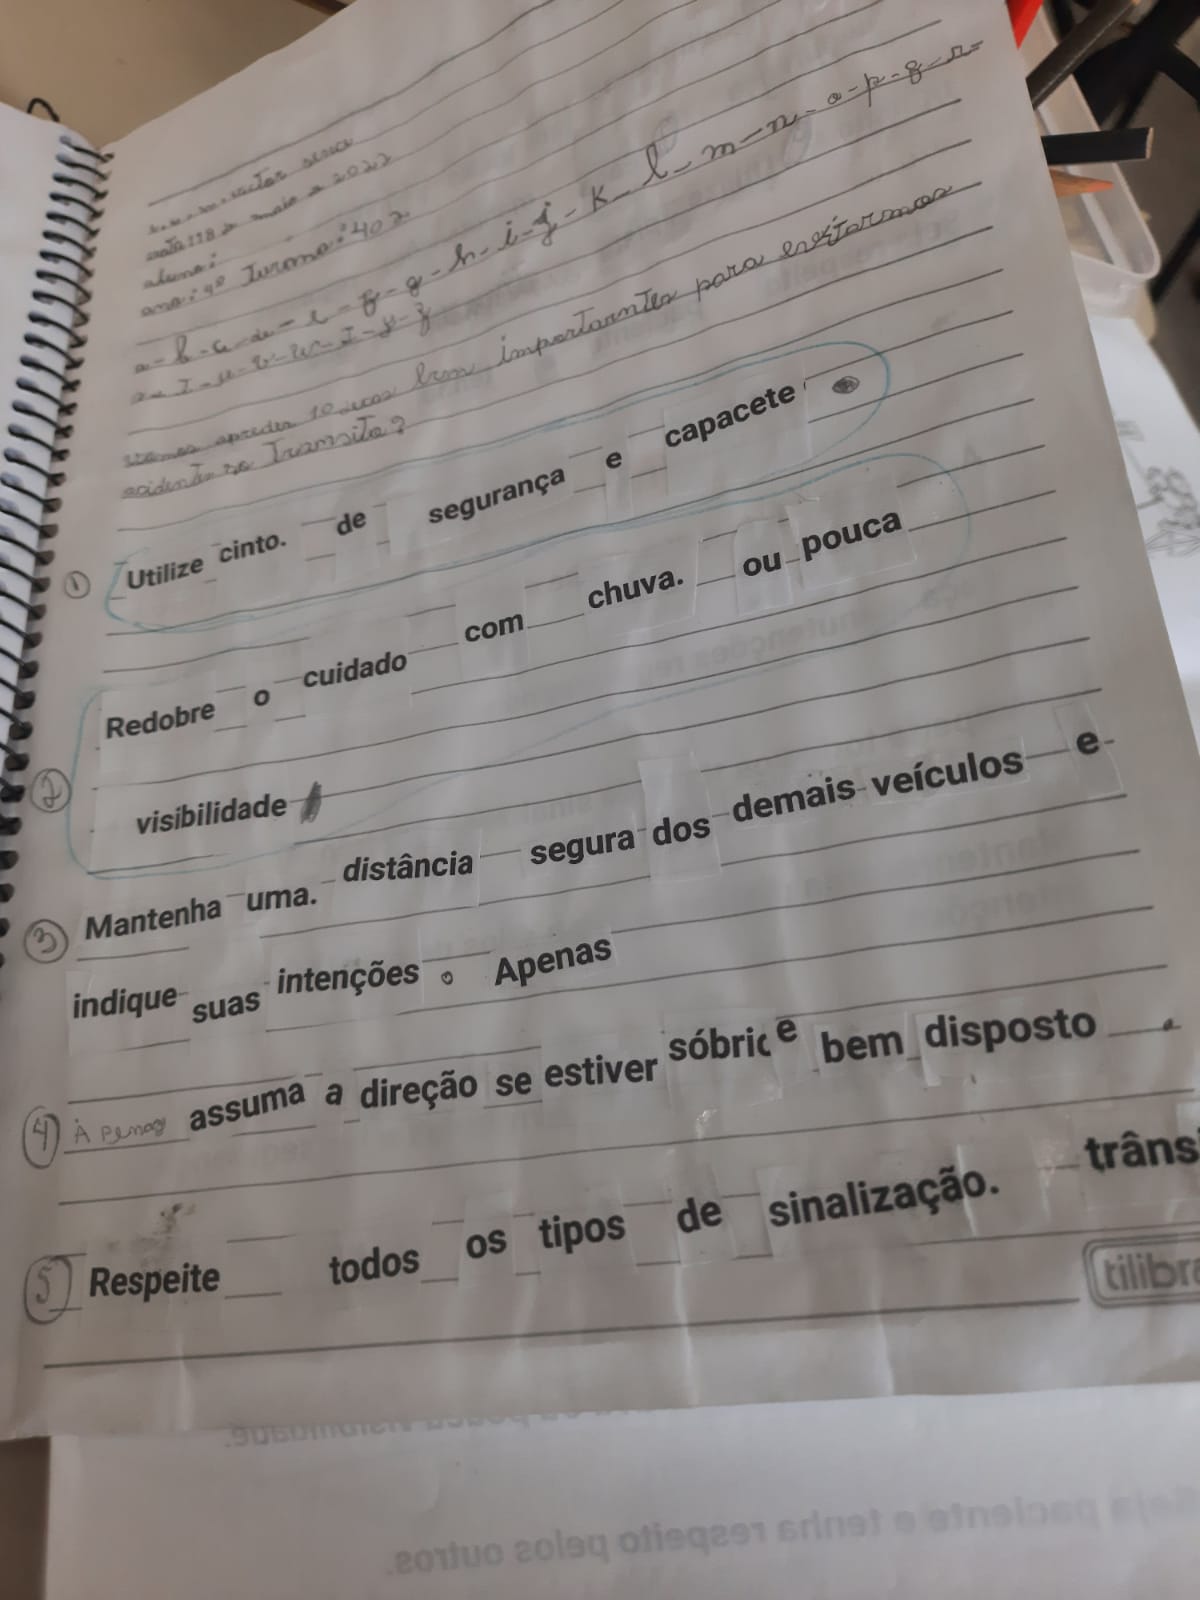 e.m.victor
data:18 maio 2022
aluno:
ano:4º Turma:402
a-b-c-d-e-f-g-h-i-j-k-l-m-n-o-p-q-r-
s-T-u-v-w-x-y-z
vamos apreder 10 dicas bem importantes para evitarmos
acidente no Transito?
① Utilize cinto. de segurança e capacete
Redobre o cuidado com chuva. ou pouca
② visibilidade
③ Mantenha uma. distância segura dos demais veículos e
indique suas intenções . Apenas
④ A penas assuma a direção se estiver sóbric e bem disposto .
⑤ Respeite todos os tipos de sinalização. trâns
tilibra
visibilidade.
Seja paciente e tenha respeito pelos outros.